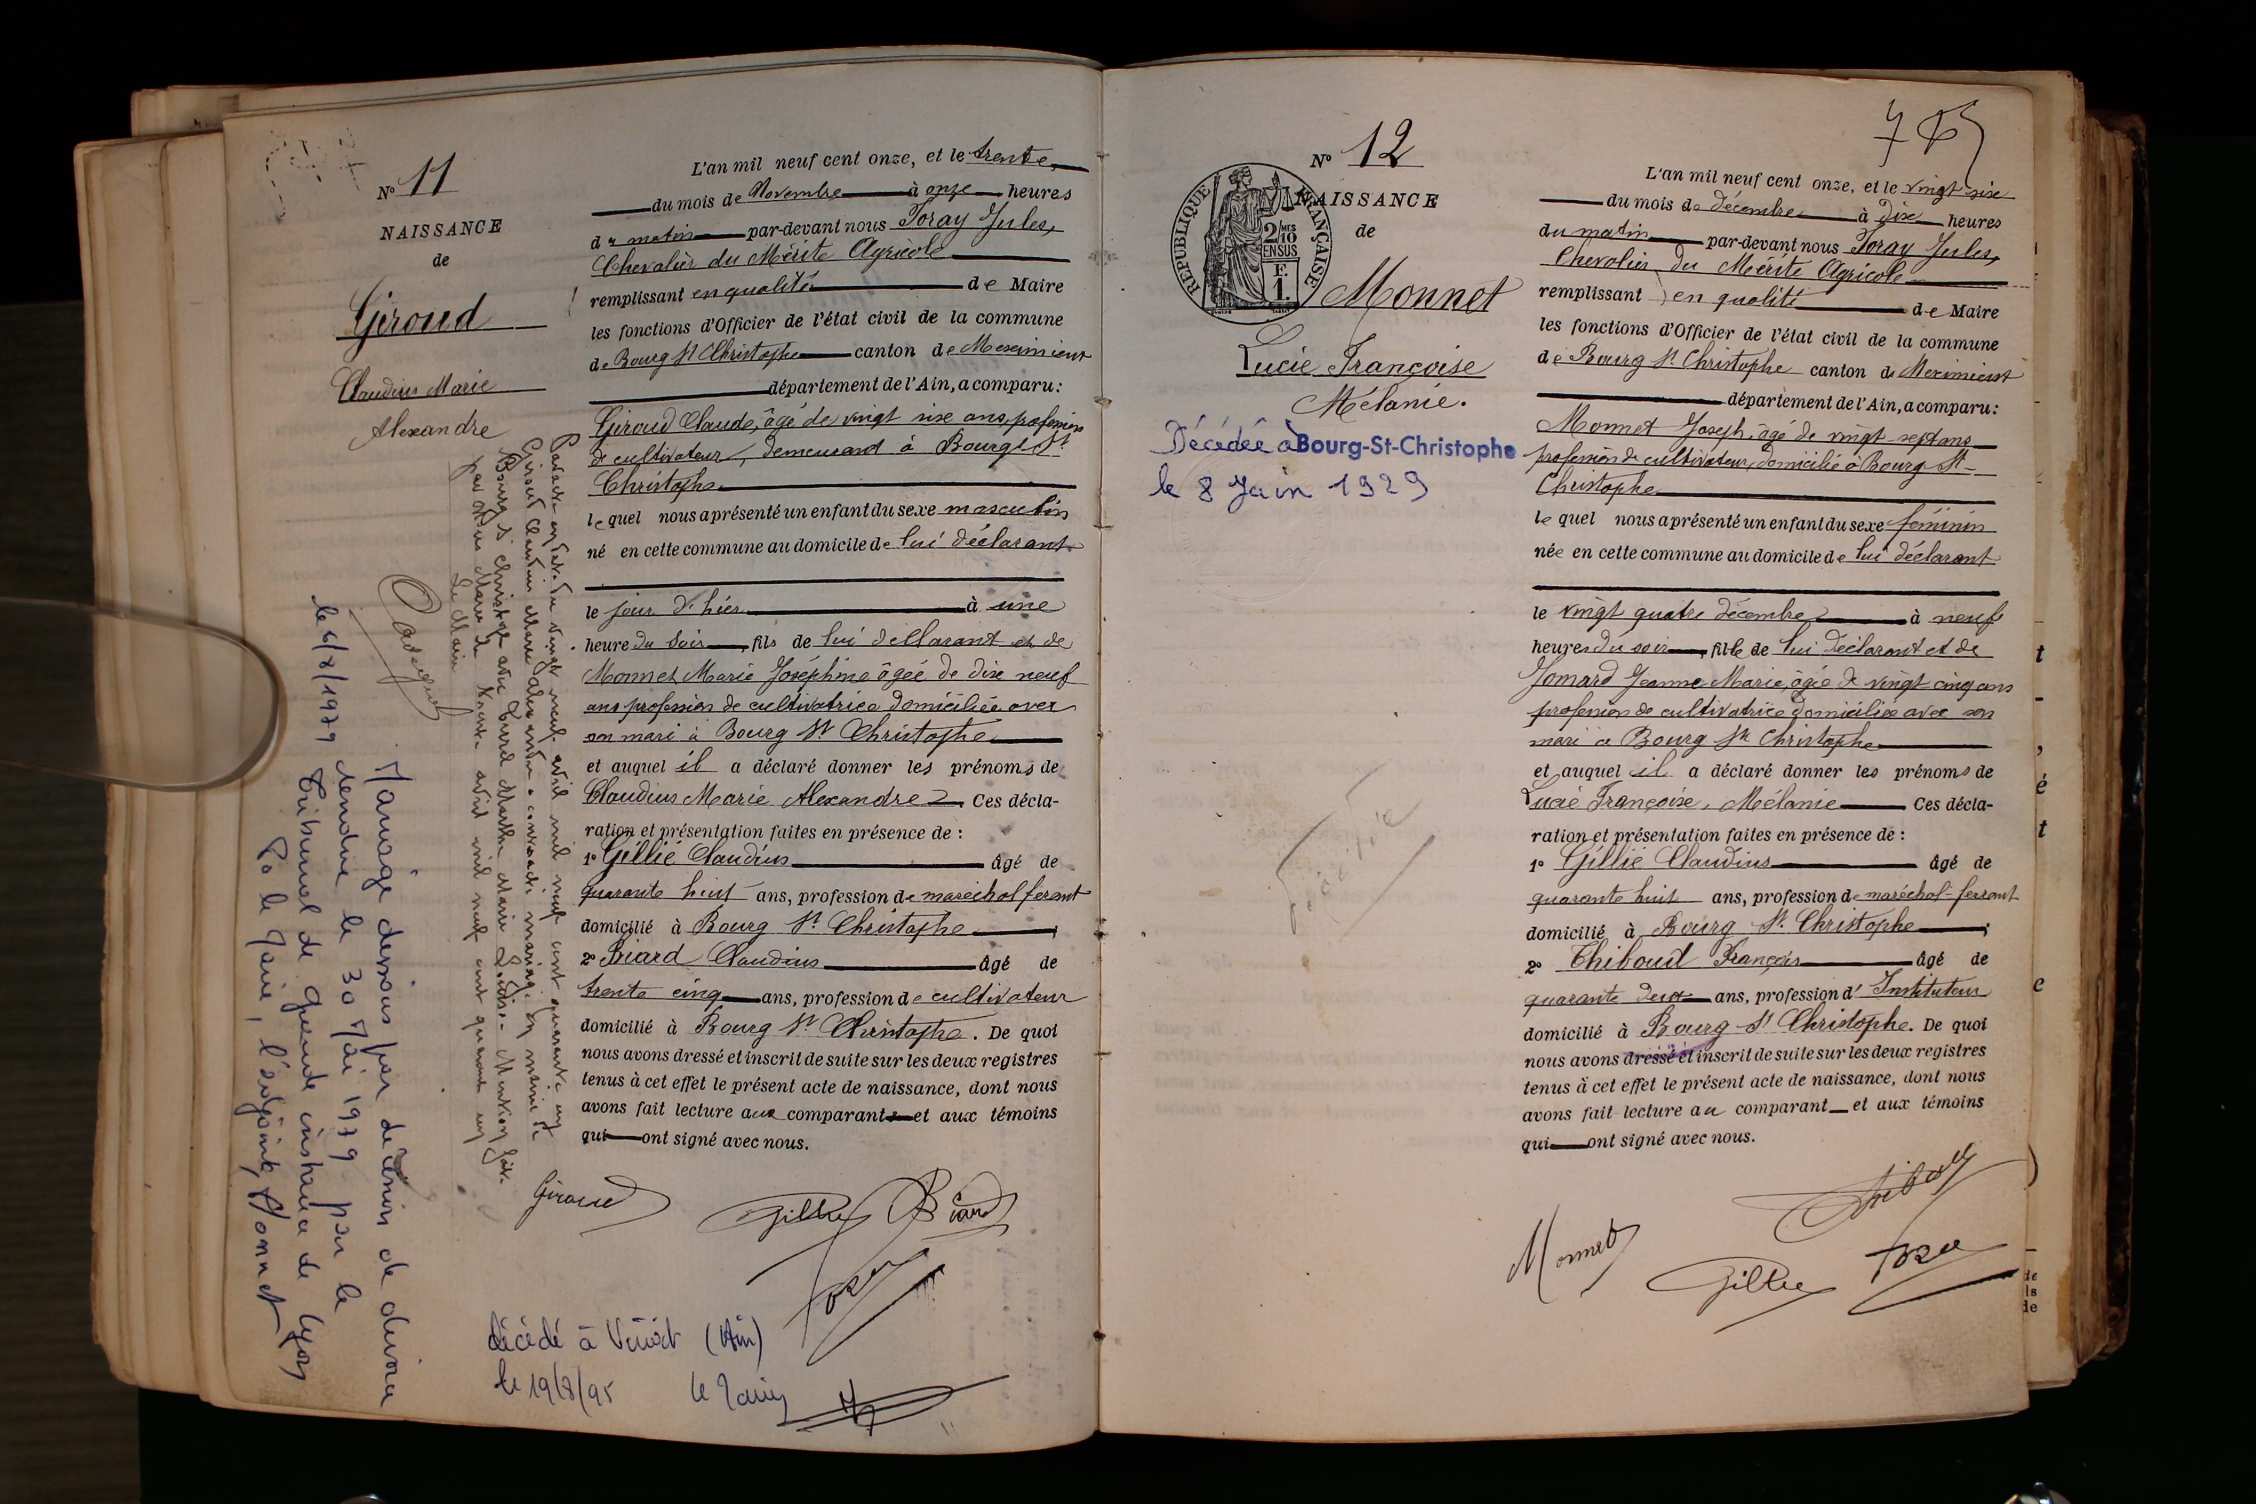 N° 11
NAISSANCE
de
Giroud
Claudius Marie
Alexandre
L'an mil neuf cent onze, et le trente
du mois de Novembre à onze heures
du matin par-devant nous Foray Jules,
Chevalier du Mérite Agricole
remplissant en qualité de Maire
les fonctions d'Officier de l'état civil de la commune
de Bourg St Christophe canton de Meximieux
département de l'Ain, a comparu:
Giroud Claude, âgé de vingt six ans, profession
de cultivateur, demeurant à Bourg St
Christophe
lequel nous a présenté un enfant du sexe masculin
né en cette commune au domicile de lui déclarant
le jour d'hier à une
heure du soir, fils de lui déclarant et de
Monnet Marie Joséphine âgée de dix neuf
ans profession de cultivatrice domiciliée avec
son mari à Bourg St Christophe
et auquel il a déclaré donner les prénoms de
Claudius Marie Alexandre Ces décla-
ration et présentation faites en présence de :
1° Gillié Claudius âgé de
quarante huit ans, profession de maréchal ferant
domicilié à Bourg St Christophe ;
2° Briard Claudius âgé de
trente cinq ans, profession de cultivateur
domicilié à Bourg St Christophe. De quoi
nous avons dressé et inscrit de suite sur les deux registres
tenus à cet effet le présent acte de naissance, dont nous
avons fait lecture aux comparant et aux témoins
qui ont signé avec nous.
Giroud
Gillié Briard
Foray
Par acte en date du vingt neuf avril mil neuf cent quarante un
Giroud Claudius Marie Alexandre a contracté mariage en mairie de
Bourg St Christophe avec Marthe Marie Mention faite
par nous Maire le trente avril mil neuf cent quarante un
Le Maire
Mariage dessous par décision de divorce
rendue le 30 Mai 1979 par le
Tribunal de grande instance de Lyon
le 6/8/1979
Po le Maire, l'adjoint, Monnet
décédé à (Ain)
le 19/8/95 le Maire
N° 12
NAISSANCE
de
REPUBLIQUE FRANÇAISE
2/10 MES
EN SUS
F.
1.
Monnet
Lucie Françoise
Mélanie.
Décédée à Bourg-St-Christophe
le 8 Juin 1929
L'an mil neuf cent onze, et le vingt-six
du mois de décembre à dix heures
du matin par-devant nous Foray Jules,
Chevalier du Mérite Agricole
remplissant en qualité de Maire
les fonctions d'Officier de l'état civil de la commune
de Bourg St Christophe canton de Meximieux
département de l'Ain, a comparu:
Monnet Joseph, âgé de vingt-sept ans
profession de cultivateur, domicilié à Bourg St-
Christophe
lequel nous a présenté un enfant du sexe féminin
née en cette commune au domicile de lui déclarant
le vingt quatre décembre à neuf
heures du soir, fille de lui déclarant et de
Jomard Jeanne Marie, âgée de vingt cinq ans
profession de cultivatrice domiciliée avec son
mari à Bourg St Christophe
et auquel il a déclaré donner les prénoms de
Lucie Françoise, Mélanie Ces décla-
ration et présentation faites en présence de :
1° Gillié Claudius âgé de
quarante huit ans, profession de maréchal-ferrant
domicilié à Bourg St Christophe ;
2° Thiboud François âgé de
quarante deux ans, profession d'Instituteur
domicilié à Bourg St Christophe. De quoi
nous avons dressé et inscrit de suite sur les deux registres
tenus à cet effet le présent acte de naissance, dont nous
avons fait lecture au comparant et aux témoins
qui ont signé avec nous.
Thiboud
Monnet Gillié Foray